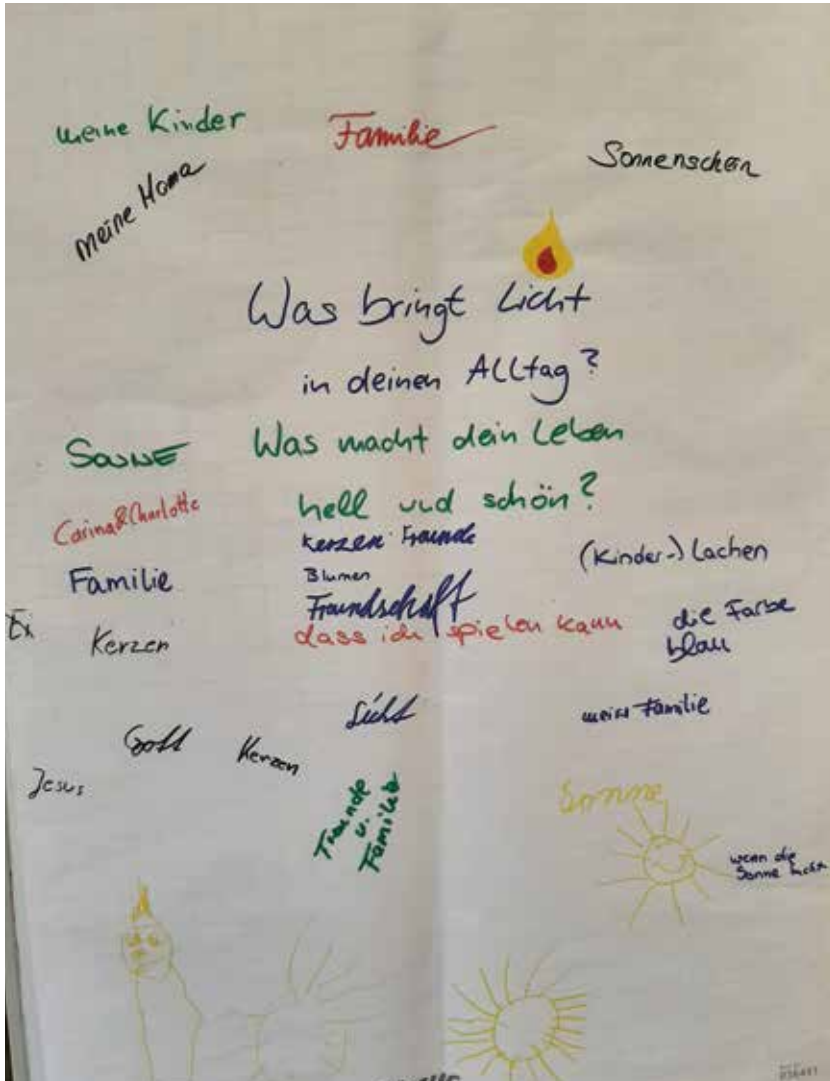 meine Kinder
Familie
Sonnenschein
meine Mama
Was bringt Licht
in deinen Alltag?
SONNE
Was macht dein Leben
hell und schön?
Carina & Charlotte
Kerzen Freunde
(Kinder-) Lachen
Familie
Blumen
Freundschaft
die Farbe
blau
Kerzen
dass ich spielen kann
Licht
meine Familie
Gott
Kerzen
Jesus
Freunde
u.
Familie
Sonne
wenn die
Sonne lacht